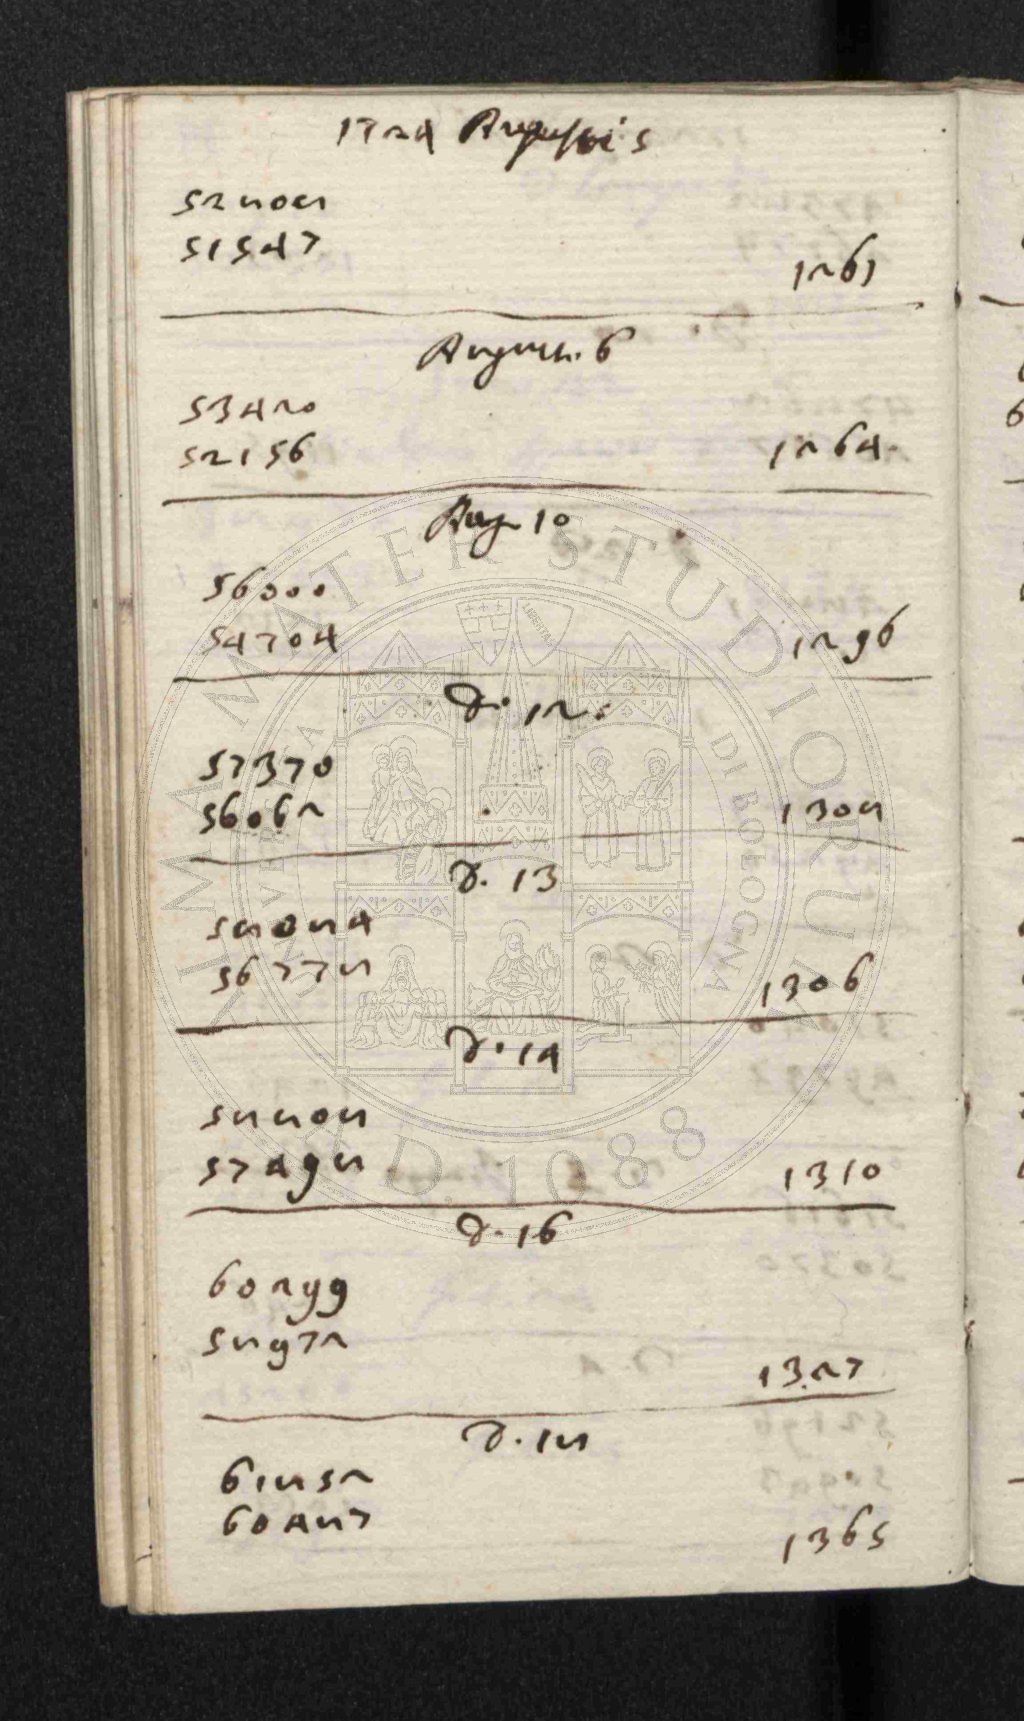 1724 Augusti 5
52808
51547
1261
August. 6
53420
52156
1264.
Aug 10
56000
54704
1296
D. 12.
57370
56062
1308
D. 13
58084
56778
1306
D. 14
58808
57498
1310
D. 16
60299
58972
1327
D. 18
61852
60487
1365
ALMA MATER STUDIORUM
UNIVERSITÀ DI BOLOGNA
A.D. 1088
LIBERTAS